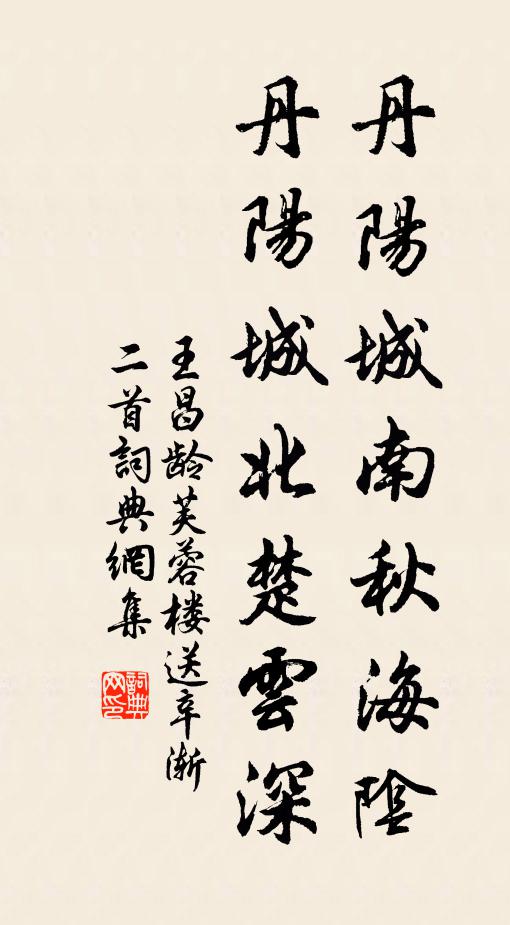 丹陽城南秋海陰
丹陽城北楚雲深
王昌龄芙蓉楼送辛渐
二首詞典網集
詞典网印